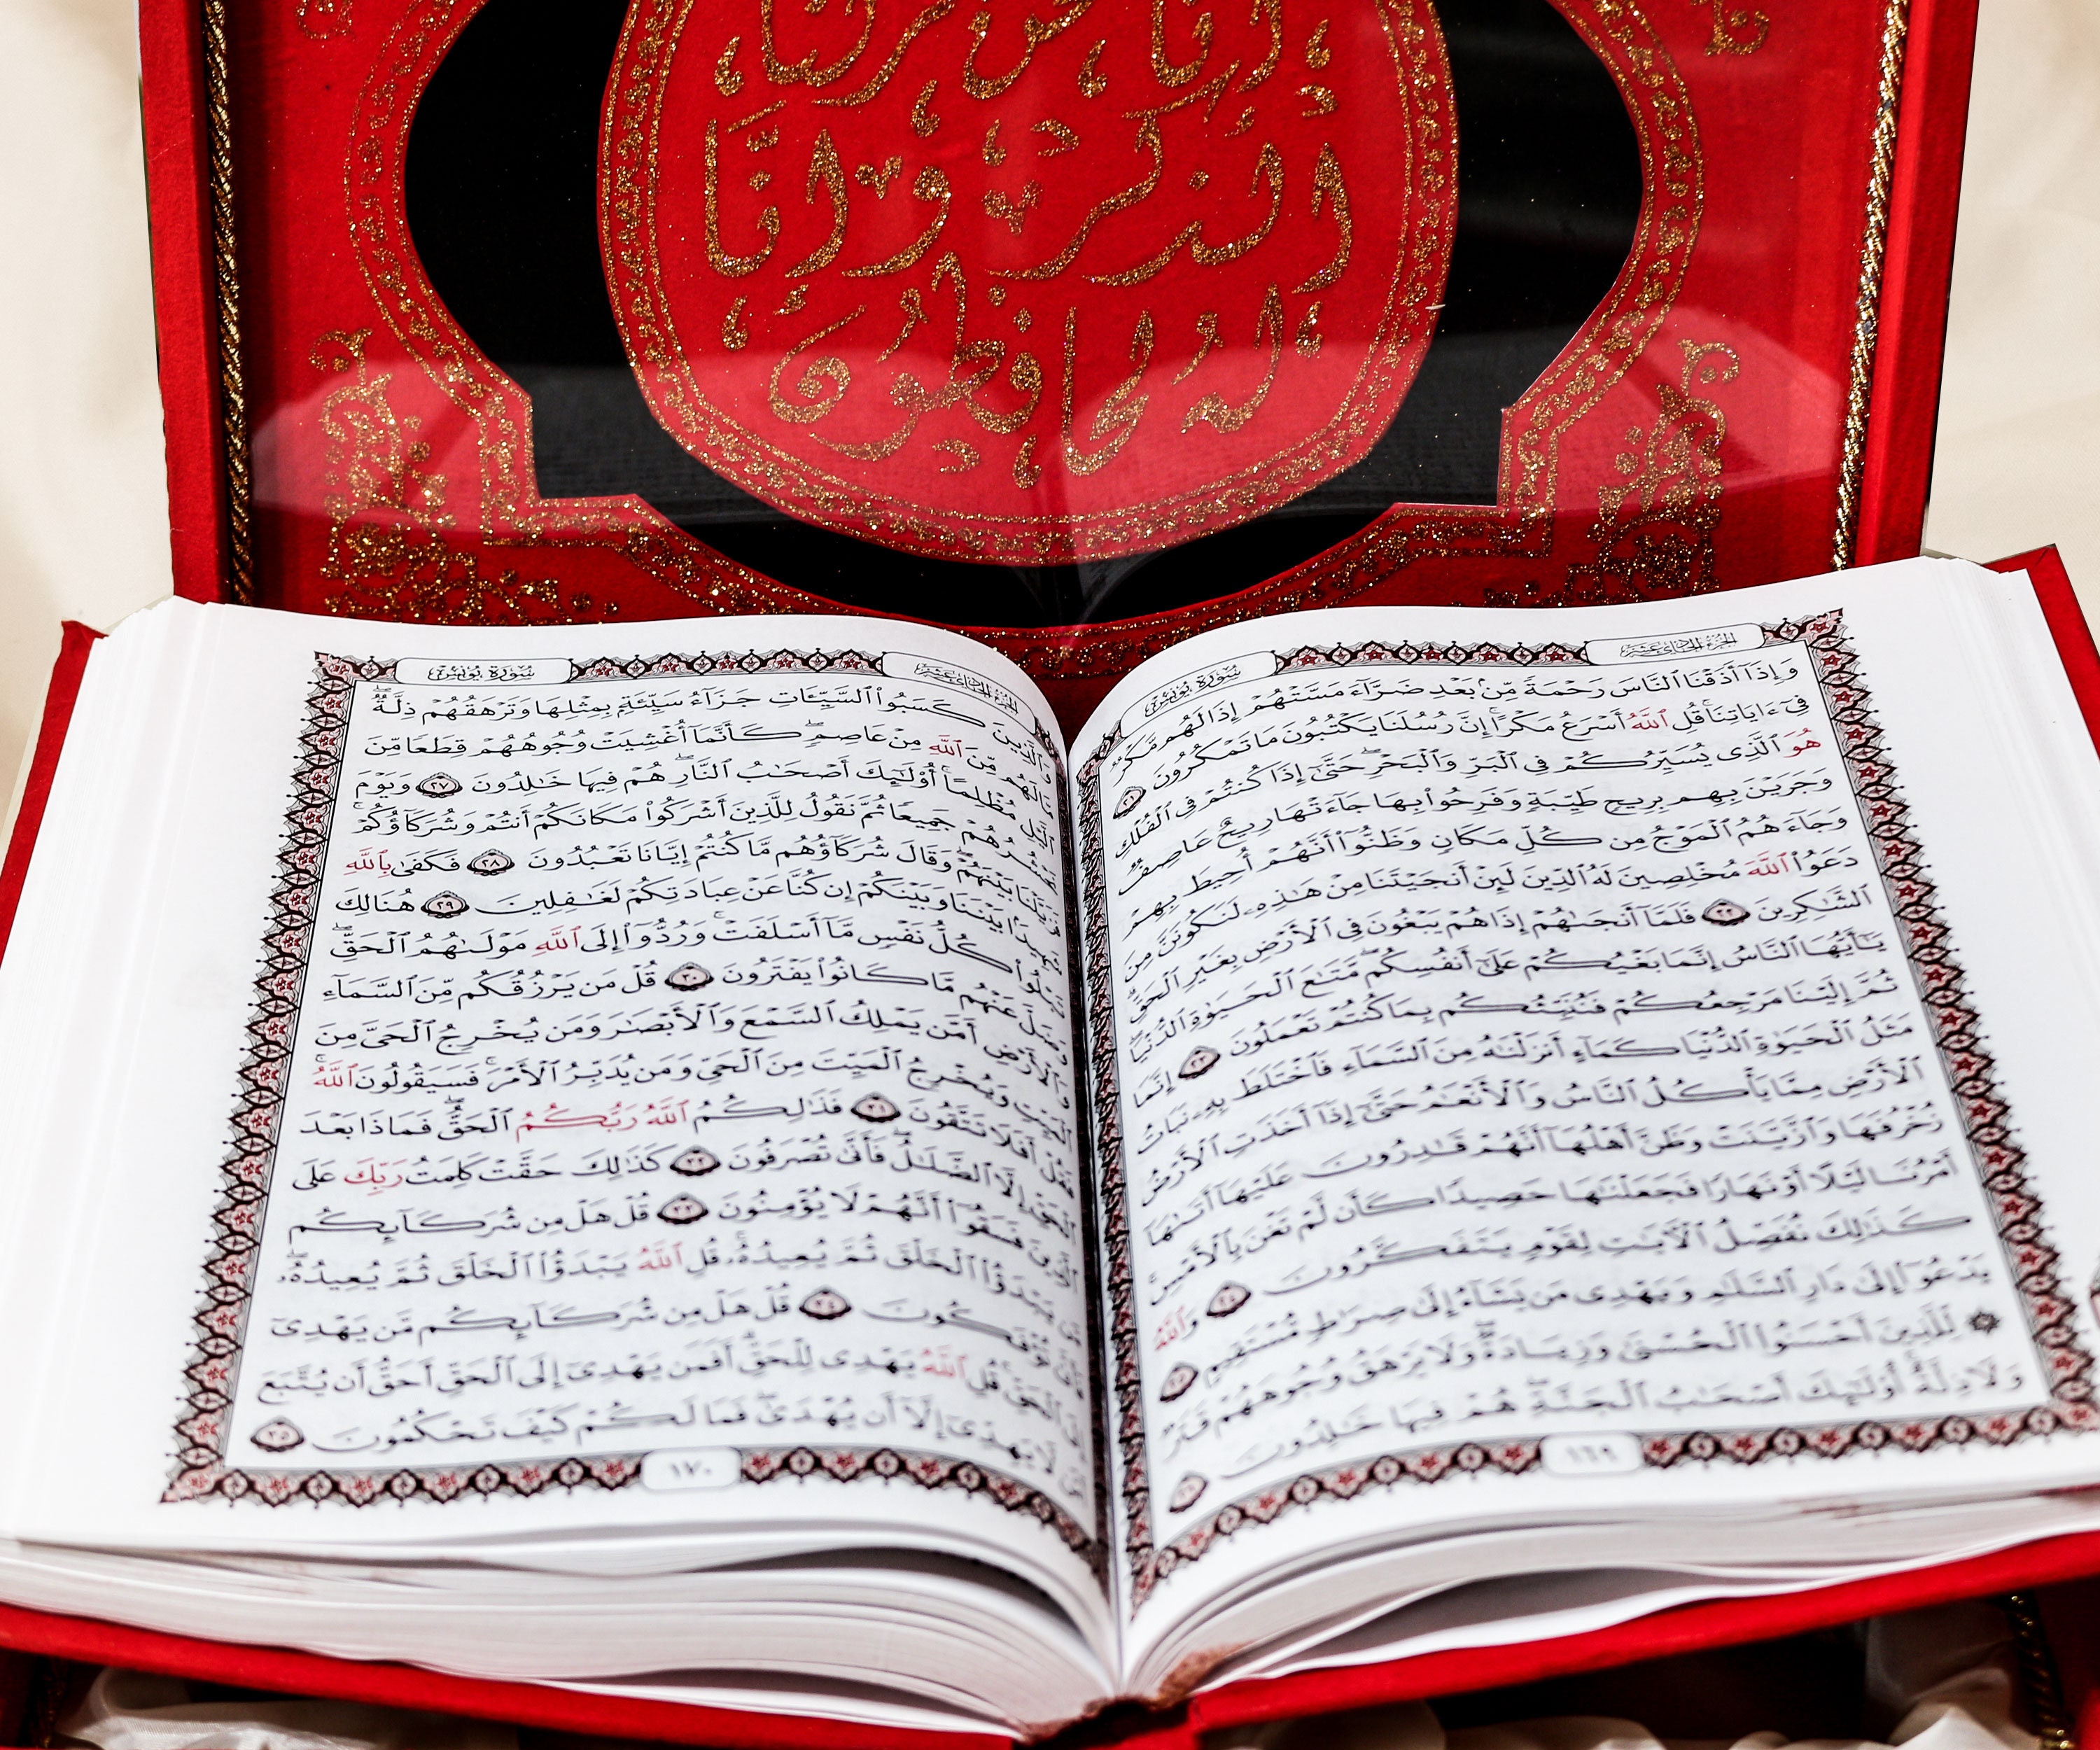 إِنَّا نَحْنُ نَزَّلْنَا
الذِّكْرَ وَإِنَّا
لَهُ لَحَافِظُونَ
الجزء الحادي عشر سورة يونس
وَإِذَآ أَذَقْنَا ٱلنَّاسَ رَحْمَةً مِّنۢ بَعْدِ ضَرَّآءَ مَسَّتْهُمْ إِذَا لَهُم مَّكْرٌ
فِىٓ ءَايَاتِنَا ۚ قُلِ ٱللَّهُ أَسْرَعُ مَكْرًا ۚ إِنَّ رُسُلَنَا يَكْتُبُونَ مَا تَمْكُرُونَ ٢١
هُوَ ٱلَّذِى يُسَيِّرُكُمْ فِى ٱلْبَرِّ وَٱلْبَحْرِ ۖ حَتَّىٰٓ إِذَا كُنتُمْ فِى ٱلْفُلْكِ
وَجَرَيْنَ بِهِم بِرِيحٍ طَيِّبَةٍ وَفَرِحُوا۟ بِهَا جَآءَتْهَا رِيحٌ عَاصِفٌ
وَجَآءَهُمُ ٱلْمَوْجُ مِن كُلِّ مَكَانٍ وَظَنُّوٓا۟ أَنَّهُمْ أُحِيطَ بِهِمْ
دَعَوُا۟ ٱللَّهَ مُخْلِصِينَ لَهُ ٱلدِّينَ لَئِنْ أَنجَيْتَنَا مِنْ هَـٰذِهِۦ لَنَكُونَنَّ مِنَ
ٱلشَّـٰكِرِينَ ٢٢ فَلَمَّآ أَنجَىٰهُمْ إِذَا هُمْ يَبْغُونَ فِى ٱلْأَرْضِ بِغَيْرِ ٱلْحَقِّ ۗ
يَـٰٓأَيُّهَا ٱلنَّاسُ إِنَّمَا بَغْيُكُمْ عَلَىٰٓ أَنفُسِكُم ۖ مَّتَـٰعَ ٱلْحَيَوٰةِ ٱلدُّنْيَا ۖ
ثُمَّ إِلَيْنَا مَرْجِعُكُمْ فَنُنَبِّئُكُم بِمَا كُنتُمْ تَعْمَلُونَ ٢٣ إِنَّمَا
مَثَلُ ٱلْحَيَوٰةِ ٱلدُّنْيَا كَمَآءٍ أَنزَلْنَـٰهُ مِنَ ٱلسَّمَآءِ فَٱخْتَلَطَ بِهِۦ نَبَاتُ
ٱلْأَرْضِ مِمَّا يَأْكُلُ ٱلنَّاسُ وَٱلْأَنْعَـٰمُ حَتَّىٰٓ إِذَآ أَخَذَتِ ٱلْأَرْضُ
زُخْرُفَهَا وَٱزَّيَّنَتْ وَظَنَّ أَهْلُهَآ أَنَّهُمْ قَـٰدِرُونَ عَلَيْهَآ أَتَىٰهَآ
أَمْرُنَا لَيْلًا أَوْ نَهَارًا فَجَعَلْنَـٰهَا حَصِيدًا كَأَن لَّمْ تَغْنَ بِٱلْأَمْسِ ۚ
كَذَٰلِكَ نُفَصِّلُ ٱلْآيَـٰتِ لِقَوْمٍ يَتَفَكَّرُونَ ٢٤ وَٱللَّهُ
يَدْعُوٓا۟ إِلَىٰ دَارِ ٱلسَّلَـٰمِ وَيَهْدِى مَن يَشَآءُ إِلَىٰ صِرَٰطٍ مُّسْتَقِيمٍ ٢٥
۞ لِّلَّذِينَ أَحْسَنُوا۟ ٱلْحُسْنَىٰ وَزِيَادَةٌ ۖ وَلَا يَرْهَقُ وُجُوهَهُمْ قَتَرٌ
وَلَا ذِلَّةٌ ۚ أُو۟لَـٰٓئِكَ أَصْحَـٰبُ ٱلْجَنَّةِ ۖ هُمْ فِيهَا خَـٰلِدُونَ ٢٦
١٦٩
الجزء الحادي عشر سورة يونس
وَٱلَّذِينَ كَسَبُوا۟ ٱلسَّيِّـَٔاتِ جَزَآءُ سَيِّئَةٍۭ بِمِثْلِهَا وَتَرْهَقُهُمْ ذِلَّةٌ ۖ
مَّا لَهُم مِّنَ ٱللَّهِ مِنْ عَاصِمٍ ۖ كَأَنَّمَآ أُغْشِيَتْ وُجُوهُهُمْ قِطَعًا مِّنَ
ٱلَّيْلِ مُظْلِمًا ۚ أُو۟لَـٰٓئِكَ أَصْحَـٰبُ ٱلنَّارِ ۖ هُمْ فِيهَا خَـٰلِدُونَ ٢٧ وَيَوْمَ
نَحْشُرُهُمْ جَمِيعًا ثُمَّ نَقُولُ لِلَّذِينَ أَشْرَكُوا۟ مَكَانَكُمْ أَنتُمْ وَشُرَكَآؤُكُمْ ۚ
فَزَيَّلْنَا بَيْنَهُمْ ۖ وَقَالَ شُرَكَآؤُهُم مَّا كُنتُمْ إِيَّانَا تَعْبُدُونَ ٢٨ فَكَفَىٰ بِٱللَّهِ
شَهِيدًۢا بَيْنَنَا وَبَيْنَكُمْ إِن كُنَّا عَنْ عِبَادَتِكُمْ لَغَـٰفِلِينَ ٢٩ هُنَالِكَ
تَبْلُوا۟ كُلُّ نَفْسٍ مَّآ أَسْلَفَتْ ۚ وَرُدُّوٓا۟ إِلَى ٱللَّهِ مَوْلَىٰهُمُ ٱلْحَقِّ ۖ
وَضَلَّ عَنْهُم مَّا كَانُوا۟ يَفْتَرُونَ ٣٠ قُلْ مَن يَرْزُقُكُم مِّنَ ٱلسَّمَآءِ
وَٱلْأَرْضِ أَمَّن يَمْلِكُ ٱلسَّمْعَ وَٱلْأَبْصَـٰرَ وَمَن يُخْرِجُ ٱلْحَىَّ مِنَ
ٱلْمَيِّتِ وَيُخْرِجُ ٱلْمَيِّتَ مِنَ ٱلْحَىِّ وَمَن يُدَبِّرُ ٱلْأَمْرَ ۚ فَسَيَقُولُونَ ٱللَّهُ ۚ
فَقُلْ أَفَلَا تَتَّقُونَ ٣١ فَذَٰلِكُمُ ٱللَّهُ رَبُّكُمُ ٱلْحَقُّ ۖ فَمَاذَا بَعْدَ
ٱلْحَقِّ إِلَّا ٱلضَّلَـٰلُ ۖ فَأَنَّىٰ تُصْرَفُونَ ٣٢ كَذَٰلِكَ حَقَّتْ كَلِمَتُ رَبِّكَ عَلَى
ٱلَّذِينَ فَسَقُوٓا۟ أَنَّهُمْ لَا يُؤْمِنُونَ ٣٣ قُلْ هَلْ مِن شُرَكَآئِكُم
مَّن يَبْدَؤُا۟ ٱلْخَلْقَ ثُمَّ يُعِيدُهُۥ ۚ قُلِ ٱللَّهُ يَبْدَؤُا۟ ٱلْخَلْقَ ثُمَّ يُعِيدُهُۥ ۖ
فَأَنَّىٰ تُؤْفَكُونَ ٣٤ قُلْ هَلْ مِن شُرَكَآئِكُم مَّن يَهْدِىٓ
إِلَى ٱلْحَقِّ ۚ قُلِ ٱللَّهُ يَهْدِى لِلْحَقِّ ۗ أَفَمَن يَهْدِىٓ إِلَى ٱلْحَقِّ أَحَقُّ أَن يُتَّبَعَ
أَمَّن لَّا يَهِدِّىٓ إِلَّآ أَن يُهْدَىٰ ۖ فَمَا لَكُمْ كَيْفَ تَحْكُمُونَ ٣٥
١٧٠